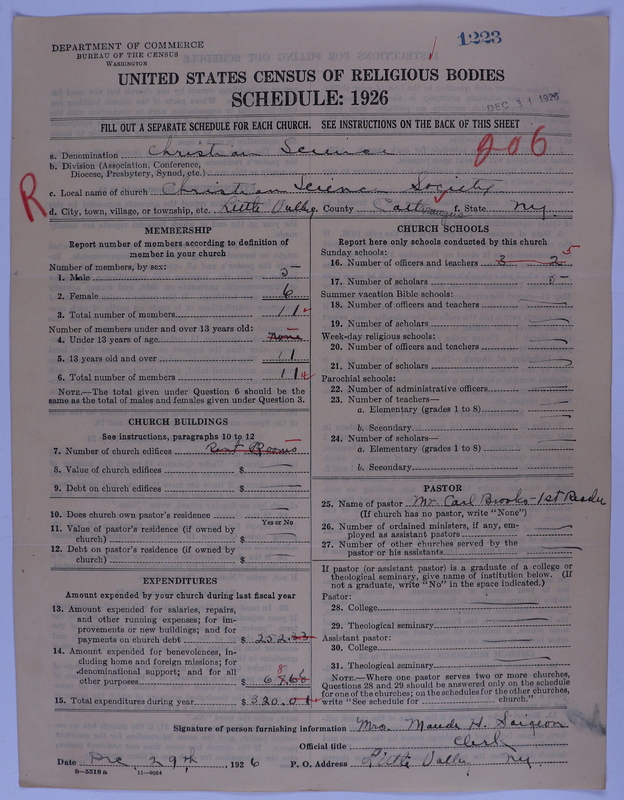 1223
DEPARTMENT OF COMMERCE
BUREAU OF THE CENSUS
WASHINGTON
UNITED STATES CENSUS OF RELIGIOUS BODIES
SCHEDULE: 1926
DEC 31 1926
FILL OUT A SEPARATE SCHEDULE FOR EACH CHURCH. SEE INSTRUCTIONS ON THE BACK OF THIS SHEET
206
a. Denomination Christian Science
b. Division (Association, Conference,
Diocese, Presbytery, Synod, etc.)
c. Local name of church Christian Science Society
R
d. City, town, village, or township, etc. Little Valley e. County Cattaraugus f. State N.Y.
MEMBERSHIP
Report number of members according to definition of
member in your church
Number of members, by sex:
1. Male 5
2. Female 6
3. Total number of members 11
Number of members under and over 13 years old:
4. Under 13 years of age None
5. 13 years old and over 11
6. Total number of members 11
NOTE.—The total given under Question 6 should be the
same as the total of males and females given under Question 3.
CHURCH BUILDINGS
See instructions, paragraphs 10 to 12
7. Number of church edifices Rent Rooms
8. Value of church edifices $
9. Debt on church edifices $
10. Does church own pastor's residence
Yes or No
11. Value of pastor's residence (if owned by
church) $
12. Debt on pastor's residence (if owned by
church) $
EXPENDITURES
Amount expended by your church during last fiscal year
13. Amount expended for salaries, repairs,
and other running expenses; for im-
provements or new buildings; and for
payments on church debt $ 252.33
14. Amount expended for benevolences, in-
cluding home and foreign missions; for
denominational support; and for all
other purposes $
15. Total expenditures during year $ 320.01
CHURCH SCHOOLS
Report here only schools conducted by this church
Sunday schools:
16. Number of officers and teachers 3 2 5
17. Number of scholars 5
Summer vacation Bible schools:
18. Number of officers and teachers
19. Number of scholars
Week-day religious schools:
20. Number of officers and teachers
21. Number of scholars
Parochial schools:
22. Number of administrative officers
23. Number of teachers—
a. Elementary (grades 1 to 8)
b. Secondary
24. Number of scholars—
a. Elementary (grades 1 to 8)
b. Secondary
PASTOR
25. Name of pastor Mr. Carl Brooks - 1st Reader
(If church has no pastor, write "None")
26. Number of ordained ministers, if any, em-
ployed as assistant pastors
27. Number of other churches served by the
pastor or his assistants
If pastor (or assistant pastor) is a graduate of a college or
theological seminary, give name of institution below. (If
not a graduate, write "No" in the space indicated.)
Pastor:
28. College
29. Theological seminary
Assistant pastor:
30. College
31. Theological seminary
NOTE.—Where one pastor serves two or more churches,
Questions 28 and 29 should be answered only on the schedule
for one of the churches; on the schedules for the other churches,
write "See schedule for church."
Signature of person furnishing information Mrs. Maude H.
Official title Clerk
Date Dec 29th, 1926 P. O. Address Little Valley N.Y.
8-5518a 11-9024